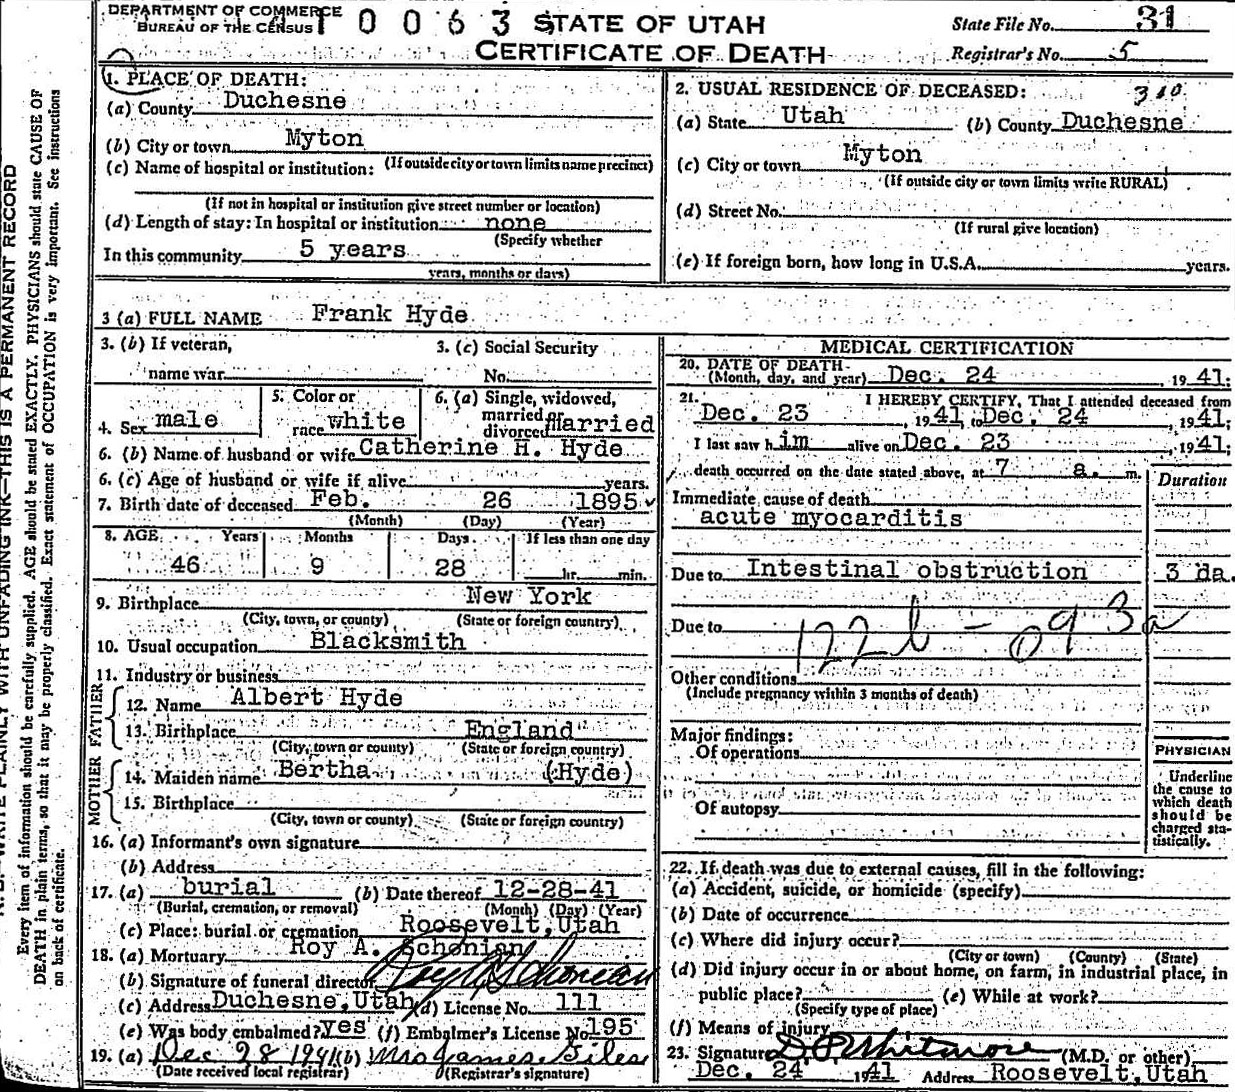 DEPARTMENT OF COMMERCE
BUREAU OF THE CENSUS
T 0 0 6 3
STATE OF UTAH
CERTIFICATE OF DEATH
State File No. 31
Registrar's No. 5
1. PLACE OF DEATH:
(a) County Duchesne
(b) City or town Myton
(If outside city or town limits name precinct)
(c) Name of hospital or institution:
(If not in hospital or institution give street number or location)
(d) Length of stay: In hospital or institution none
(Specify whether
In this community 5 years
years, months or days)
2. USUAL RESIDENCE OF DECEASED: 310
(a) State Utah (b) County Duchesne
(c) City or town Myton
(If outside city or town limits write RURAL)
(d) Street No.
(If rural give location)
(e) If foreign born, how long in U.S.A. years.
3 (a) FULL NAME Frank Hyde
3. (b) If veteran,
name war
3. (c) Social Security
No.
4. Sex male
5. Color or
race white
6. (a) Single, widowed,
married or
divorced Married
6. (b) Name of husband or wife Catherine H. Hyde
6. (c) Age of husband or wife if alive years.
7. Birth date of deceased Feb. 26 1895
(Month) (Day) (Year)
8. AGE Years Months Days If less than one day
46 9 28 hr. min.
9. Birthplace New York
(City, town, or county) (State or foreign country)
10. Usual occupation Blacksmith
11. Industry or business
FATHER
12. Name Albert Hyde
13. Birthplace England
(City, town or county) (State or foreign country)
MOTHER
14. Maiden name Bertha (Hyde)
15. Birthplace
(City, town or county) (State or foreign country)
16. (a) Informant's own signature
(b) Address
17. (a) burial (b) Date thereof 12-28-41
(Burial, cremation, or removal) (Month) (Day) (Year)
(c) Place: burial or cremation Roosevelt, Utah
18. (a) Mortuary Roy A. Schonian
(b) Signature of funeral director Roy A Schonian
(c) Address Duchesne, Utah (d) License No. 111
(e) Was body embalmed? yes (f) Embalmer's License No. 195
19. (a) Dec 28 1941 (b) Mrs James Giles
(Date received local registrar) (Registrar's signature)
MEDICAL CERTIFICATION
20. DATE OF DEATH
(Month, day, and year) Dec. 24, 1941;
21. I HEREBY CERTIFY, That I attended deceased from
Dec. 23, 1941, to Dec. 24, 1941;
I last saw h im alive on Dec. 23, 1941;
death occurred on the date stated above, at 7 a. m.
Duration
Immediate cause of death
acute myocarditis
Due to Intestinal obstruction 3 da.
Due to 122b - 093a
Other conditions
(Include pregnancy within 3 months of death)
Major findings:
Of operations
Of autopsy
PHYSICIAN
Underline
the cause to
which death
should be
charged sta-
tistically.
22. If death was due to external causes, fill in the following:
(a) Accident, suicide, or homicide (specify)
(b) Date of occurrence
(c) Where did injury occur?
(City or town) (County) (State)
(d) Did injury occur in or about home, on farm, in industrial place, in
public place? (e) While at work?
(Specify type of place)
(f) Means of injury
23. Signature D. P. Whitmore (M.D. or other)
Dec. 24 1941 Address Roosevelt, Utah
WRITE PLAINLY WITH UNFADING INK—THIS IS A PERMANENT RECORD
Every item of information should be carefully supplied. AGE should be stated EXACTLY. PHYSICIANS should state CAUSE OF
DEATH in plain terms, so that it may be properly classified. Exact statement of OCCUPATION is very important. See instructions
on back of certificate.